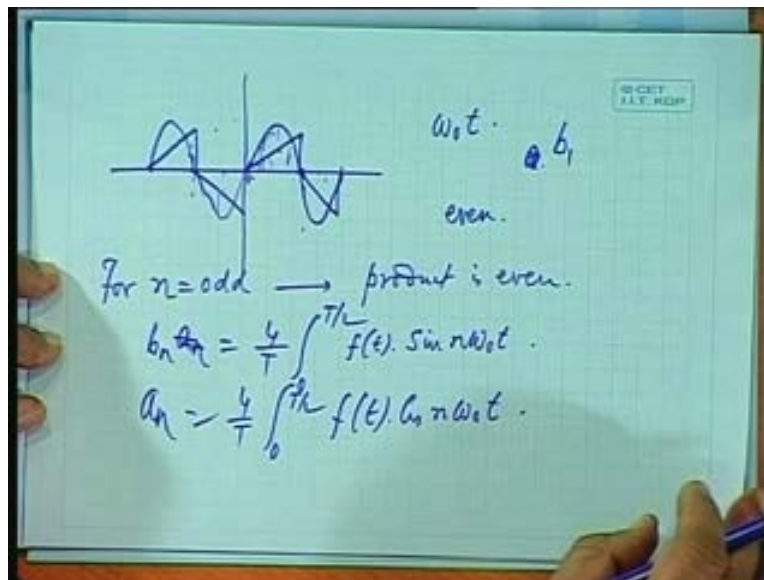 © CET
I.I.T. KGP
ω₀t.
b₁
even.
For n = odd → product is even.
bₙ = 4/T ∫₀^T/2 f(t). Sin nω₀t.
aₙ = 4/T ∫₀^T/2 f(t). Cos nω₀t.